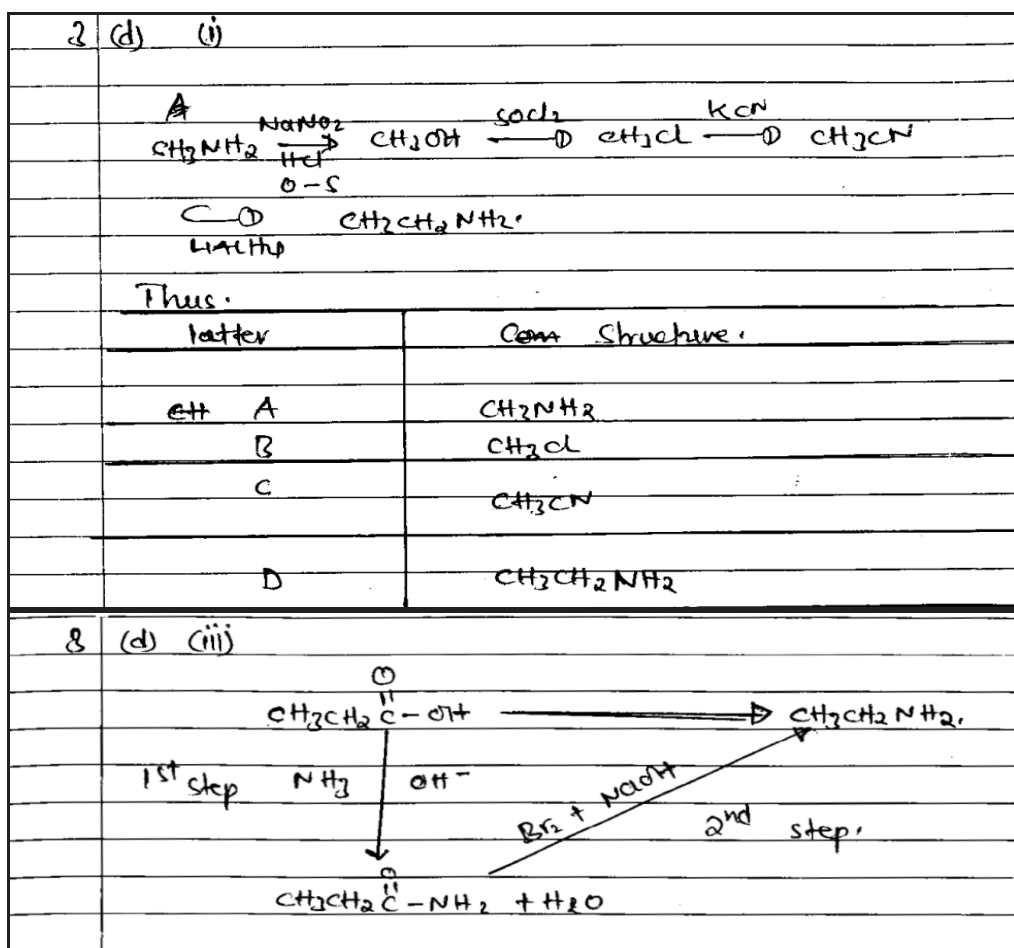 3 (d) (i)
A
CH3NH2 NaNO2 HCl 0-5 CH3OH SOCl2 CH3Cl KCN CH3CN
LiAlH4 CH3CH2NH2.
Thus.
latter Com Structure.
CH A CH3NH2
B CH3Cl
C CH3CN
D CH3CH2NH2
8 (d) (iii)
O
CH3CH2C-OH CH3CH2NH2.
1st step NH3 OH- Br2 + NaOH 2nd step.
O
CH3CH2C-NH2 + H2O